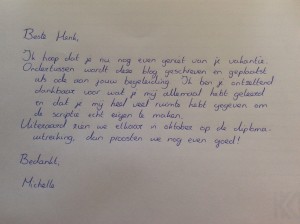 Beste Henk,
Ik hoop dat je nu nog even geniet van je vakantie.
Ondertussen wordt deze blog geschreven en geplaatst
als ode aan jouw begeleiding. Ik ben je ontzettend
dankbaar voor wat je mij allemaal hebt geleerd
en dat je mij heel veel ruimte hebt gegeven om
de scriptie echt eigen te maken.
Uiteraard zien we elkaar in oktober op de diploma-
uitreiking, dan proosten we nog even goed!
Bedankt,
Michelle